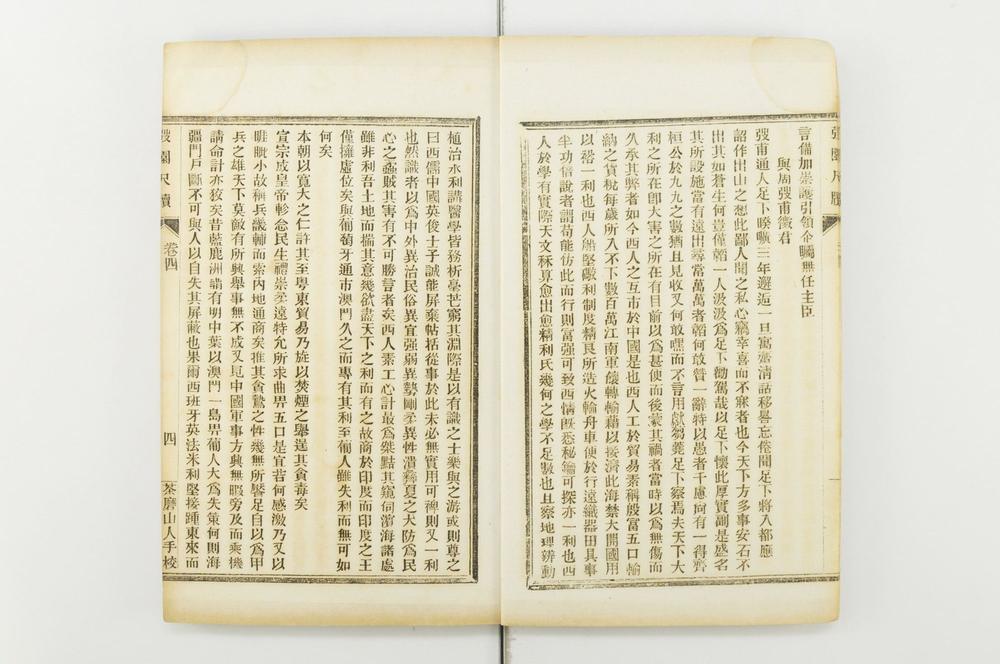 弢園尺牘
言備加崇護引領企矚無任主臣
與周弢甫徵君
弢甫通人足下睽曠三年邂逅一旦寓齋清話移晷忘倦聞足下將入都應
詔作出山之想此鄙人聞之私心竊幸喜而不寐者也今天下方多事安石不
出其如蒼生何豈僅韜一人汲汲爲足下勸駕哉以足下懷此厚實副是盛名
其所設施當有遠出尋常萬萬者韜何敢贊一辭特以愚者千慮尚有一得齊
桓公於九九之數猶且見收又何敢嘿而不言用獻芻蕘足下察焉夫天下大
利之所在卽大害之所在有目前以爲甚便而後蒙其禍者當時以爲無傷而
久承其弊者如今西人之互市於中國是也西人工於貿易素稱殷富五口輸
納之貨稅每歲所入不下數百萬江南軍饟轉輸藉以接濟此海禁大開國用
以裕一利也西人船堅礮利制度精良所造火輪舟車便於行遠織器田具事
半功倍說者謂苟能仿此而行則富強可致西情旣悉秘鑰可探亦一利也西
人於學有實際天文秝算愈出愈精利氏幾何之學不足數也且察地理辨動
植治水利講醫學皆務析毫芒窮其淵際是以有識之士樂與之游或則尊之
曰西儒中國英俊士子誠能屏棄帖括從事於此未必無實用可裨則又一利
也然識者以爲中外異治民俗異宜強弱異勢剛柔異性潰彞夏之大防爲民
心之蟊賊其害有不可勝言者矣西人素工心計最爲桀黠其窺伺濵海諸處
雖非利吾土地而揣其意幾欲盡天下之利而有之故商於印度而印度之王
僅擁虛位矣與葡萄牙通市澳門久之而專有其利至葡人雖失利而無可如
何矣
本朝以寬大之仁許其至粵東貿易乃旌以焚煙之舉逞其貪毒矣
宣宗成皇帝軫念民生禮崇柔遠特允所求曲畀五口是宜若何感激乃又以
睚眦小故稱兵畿輔而索內地通商矣推其貪鷙之性幾無所饜足自以爲甲
兵之雄天下莫敵有所興舉事無不成又見中國軍事方興無暇旁及而乘機
請命計亦狡矣昔藍鹿洲謂有明中葉以澳門一島畀葡人大爲失策何則海
疆門戶斷不可與人以自失其屏蔽也果爾西班牙英法米利堅接踵東來而
弢園尺牘
卷四
四
茶磨山人手校